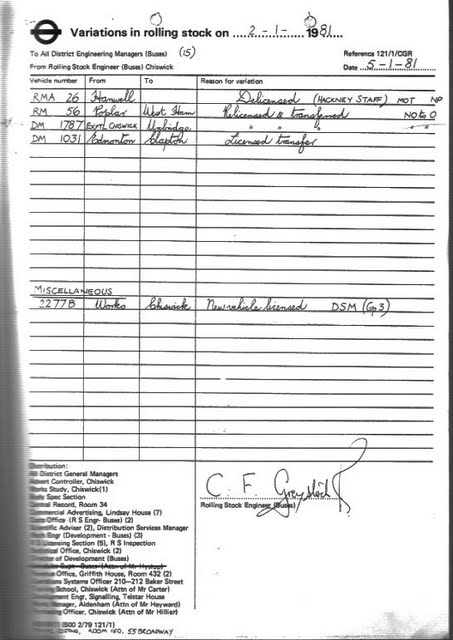 Variations in rolling stock on 2-1-1981
To All District Engineering Managers (Buses) (15)
Reference 121/1/CGR
From Rolling Stock Engineer (Buses) Chiswick
Date 5-1-81
Vehicle number From To Reason for variation
RMA 26 Hanwell Delicensed (HACKNEY STAFF) MOT NO
RM 56 Poplar West Ham Relicensed & transferred NO to O
DM 1787 EXPTL CHISWICK Uxbridge " " " " "
DM 1031 Edmonton Clapton Licensed transfer
MISCELLANEOUS
2277B Works Chiswick New vehicle licensed DSM (Gp 3)
Distribution:
All District General Managers
Advert Controller, Chiswick
Works Study, Chiswick(1)
Body Spec Section
Central Record, Room 34
Commercial Advertising, Lindsay House (7)
Office (R S Engr- Buses) (2)
Scientific Adviser (2), Distribution Services Manager
Engr (Development - Buses) (3)
R S Licensing Section (5), R S Inspection
Office, Chiswick (2)
Director of Development (Buses)
Supt- Buses (Attn of Mr Hyslop)
Office, Griffith House, Room 432 (2)
Systems Officer 210-212 Baker Street
Training School, Chiswick (Attn of Mr Carter)
Development Engr, Signalling, Telstar House
Works Manager, Aldenham (Attn of Mr Hayward)
Officer, Chiswick (Attn of Mr Hillier)
C. F. Greystock
Rolling Stock Engineer (Buses)
1800 2/79 121/1)
ROOM 55 BROADWAY